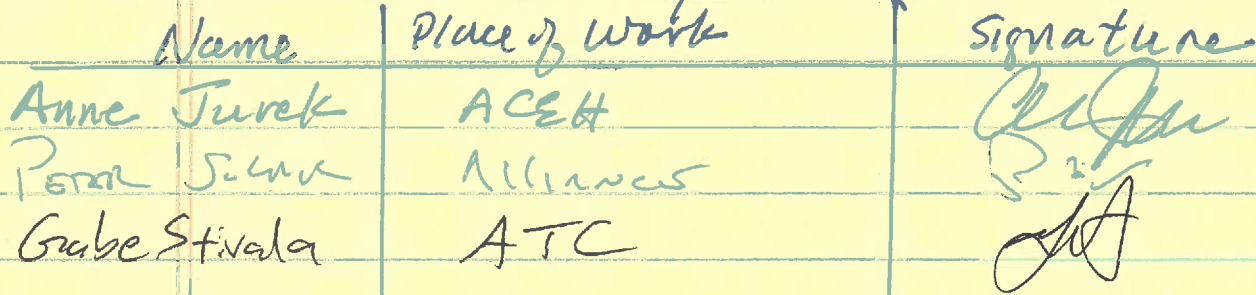 Name Place of Work Signature
Anne Jurek ACEH
Peter Alliances
Gabe Stivala ATC